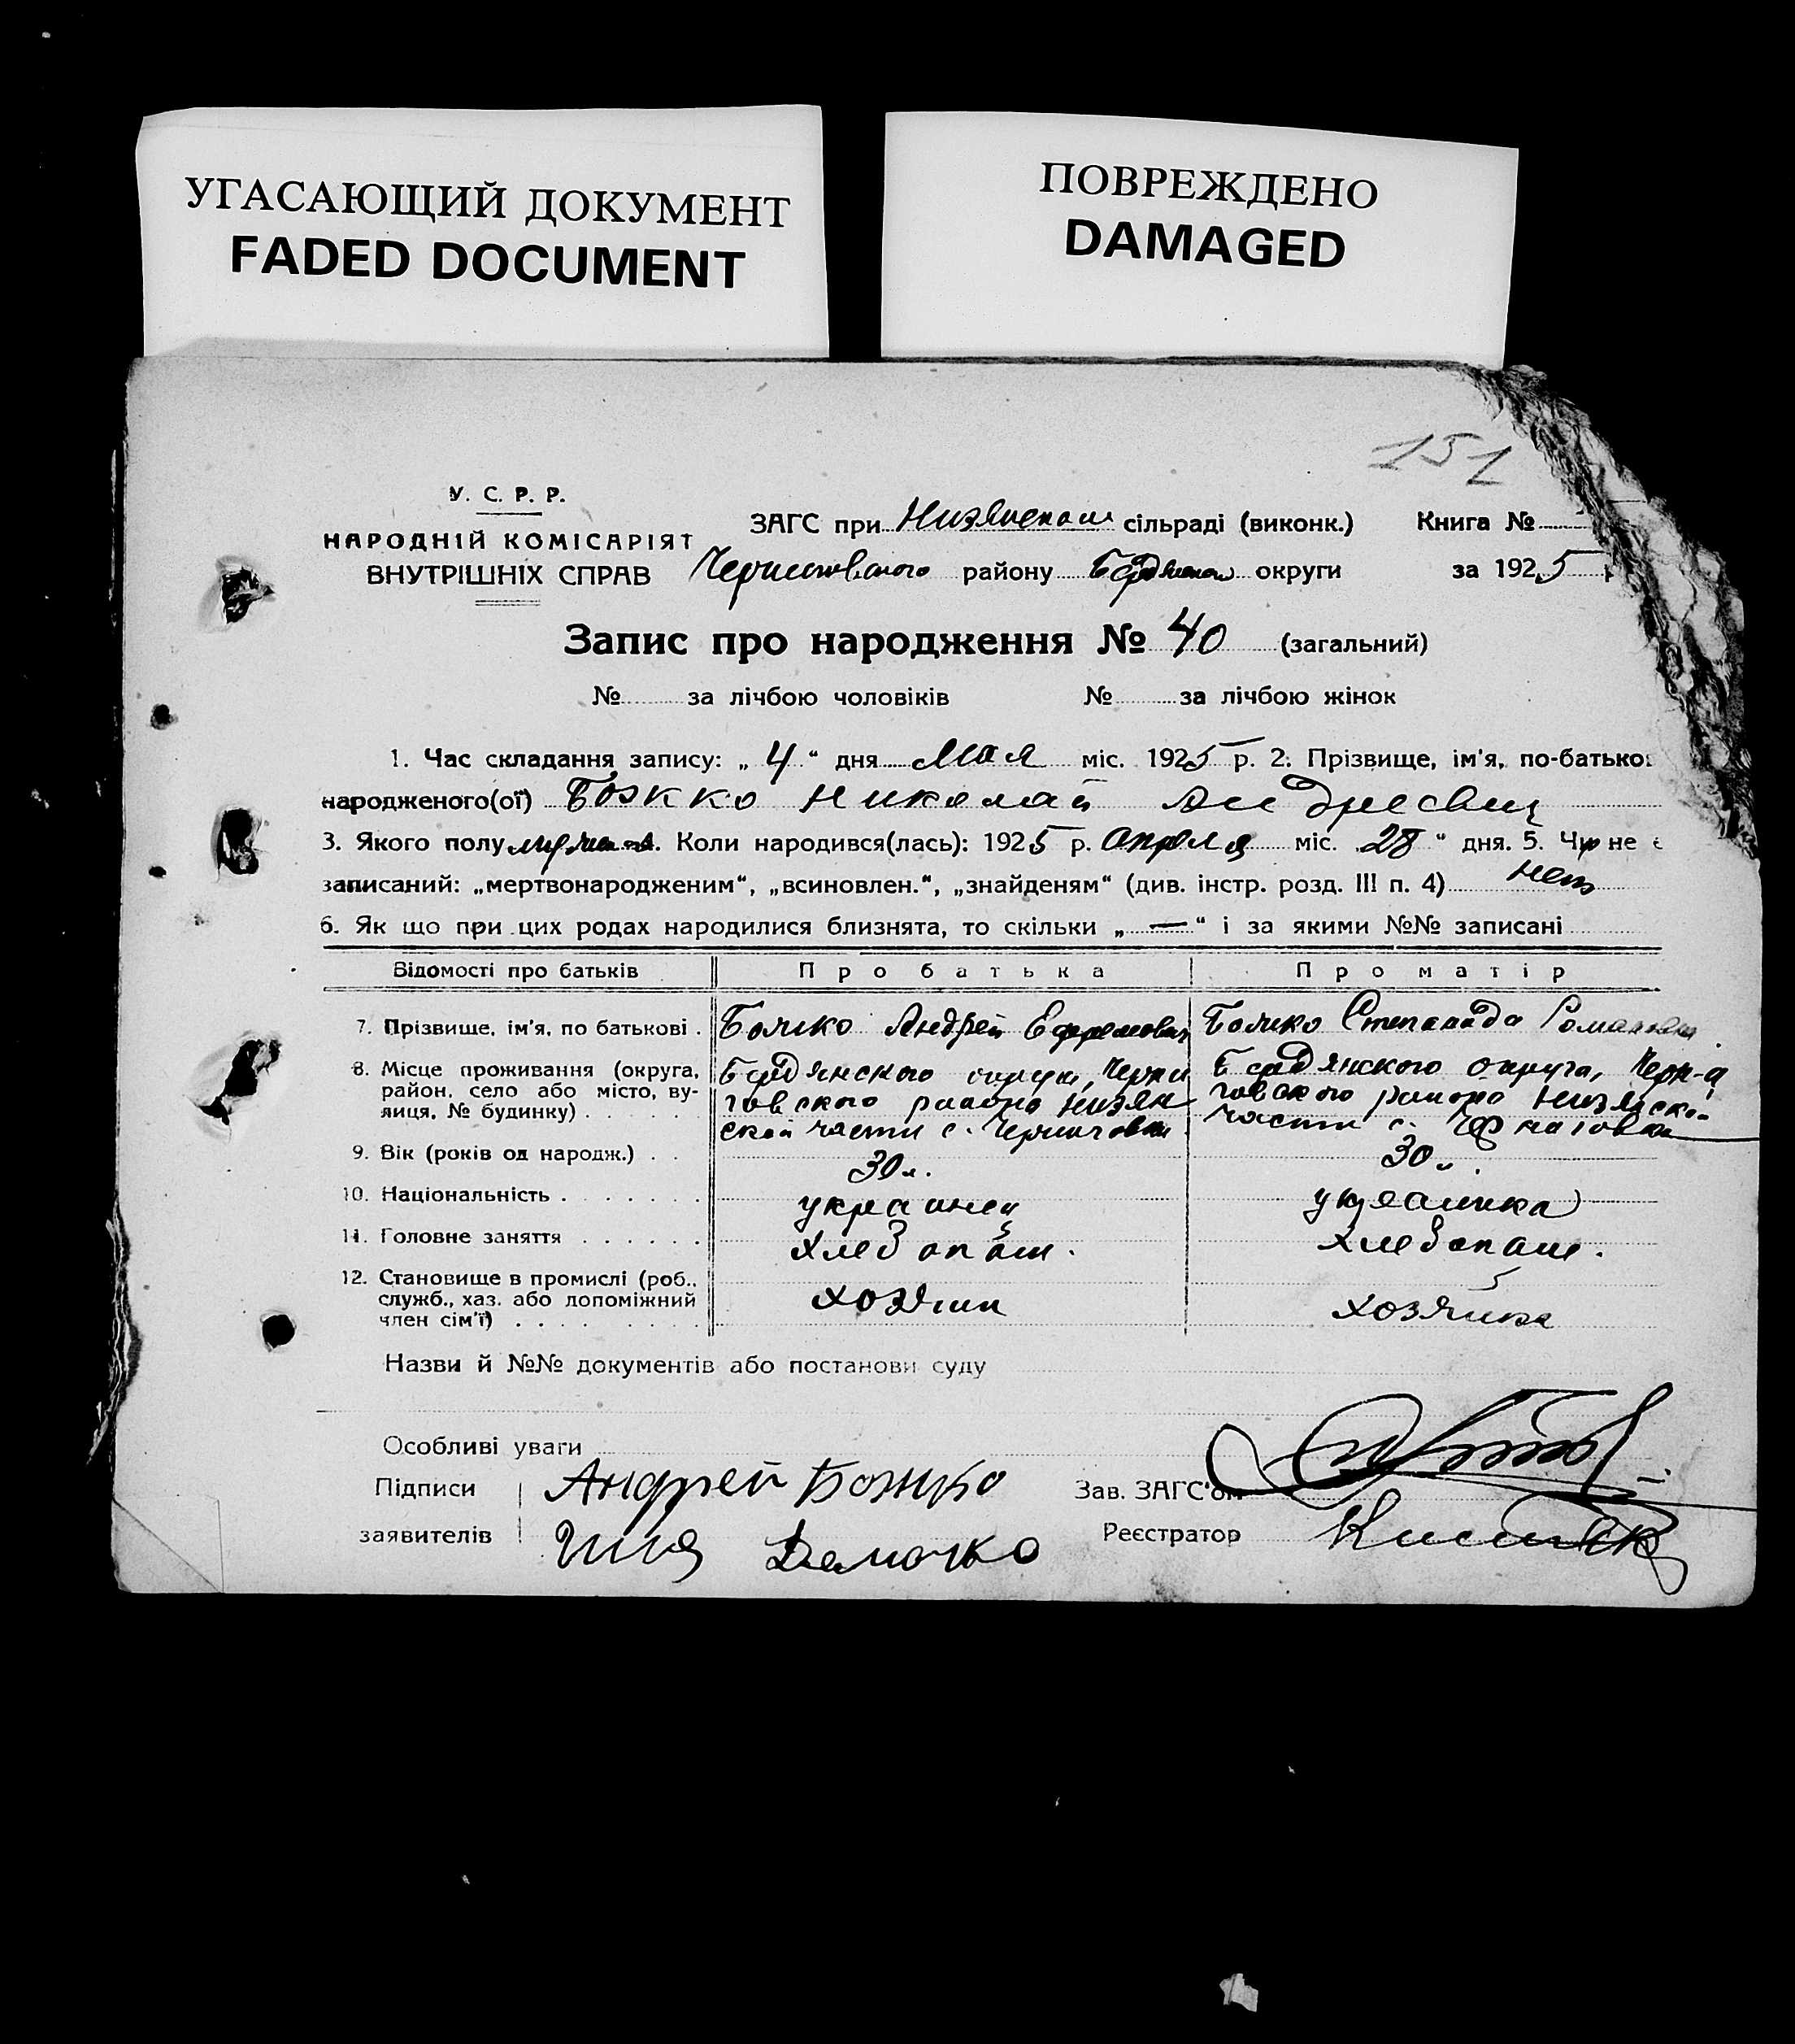 УГАСАЮЩИЙ ДОКУМЕНТ
FADED DOCUMENT
ПОВРЕЖДЕНО
DAMAGED
151
У. С. Р. Р.
НАРОДНІЙ КОМІСАРІЯТ
ВНУТРІШНІХ СПРАВ
ЗАГС при Низянском сільраді (виконк.) Книга №
Черниговского району Бердянской округи за 1925
Запис про народження № 40 (загальний)
№ за лічбою чоловіків № за лічбою жінок
1. Час складання запису: „ 4 “ дня Мая міс. 1925 р. 2. Прізвище, ім'я, по-батькові
народженого(ої) Божко Николай Андреевич
3. Якого полу Коли народився(лась): 1925 р. апреля міс. 28 “ дня. 5. Чи не є
записаний: „мертвонародженим“, „всиновлен.“, „знайденям“ (див. інстр. розд. III п. 4) нет
6. Як що при цих родах народилися близнята, то скільки „ — “ і за якими №№ записані
Відомості про батьків Про батька Про матір
7. Прізвище, ім'я, по батькові . Божко Андрей Ефремович Божко Степанида Романовна
8. Місце проживання (округа, район, село або місто, вулиця, № будинку) . . . . .
Бердянского округа, Черни
говского района Низян
ской части с. Черниговки
Бердянского округа, Черн-и
говского района Низянской
части с. Черниговки
9. Вік (років од народж.) . . 30 л. 30 л.
10. Національність . . . . . . . украинец украинка
11. Головне заняття . . . . . . хлебопаш. хлебопаш.
12. Становище в промислі (роб., служб., хаз. або допоміжний член сім'ї) . . . . . . . . . хозяин хозяйка
Назви й №№ документів або постанови суду
Особливі уваги
Підписи Андрей Божко Зав. ЗАГС'ом
заявителів Реєстратор